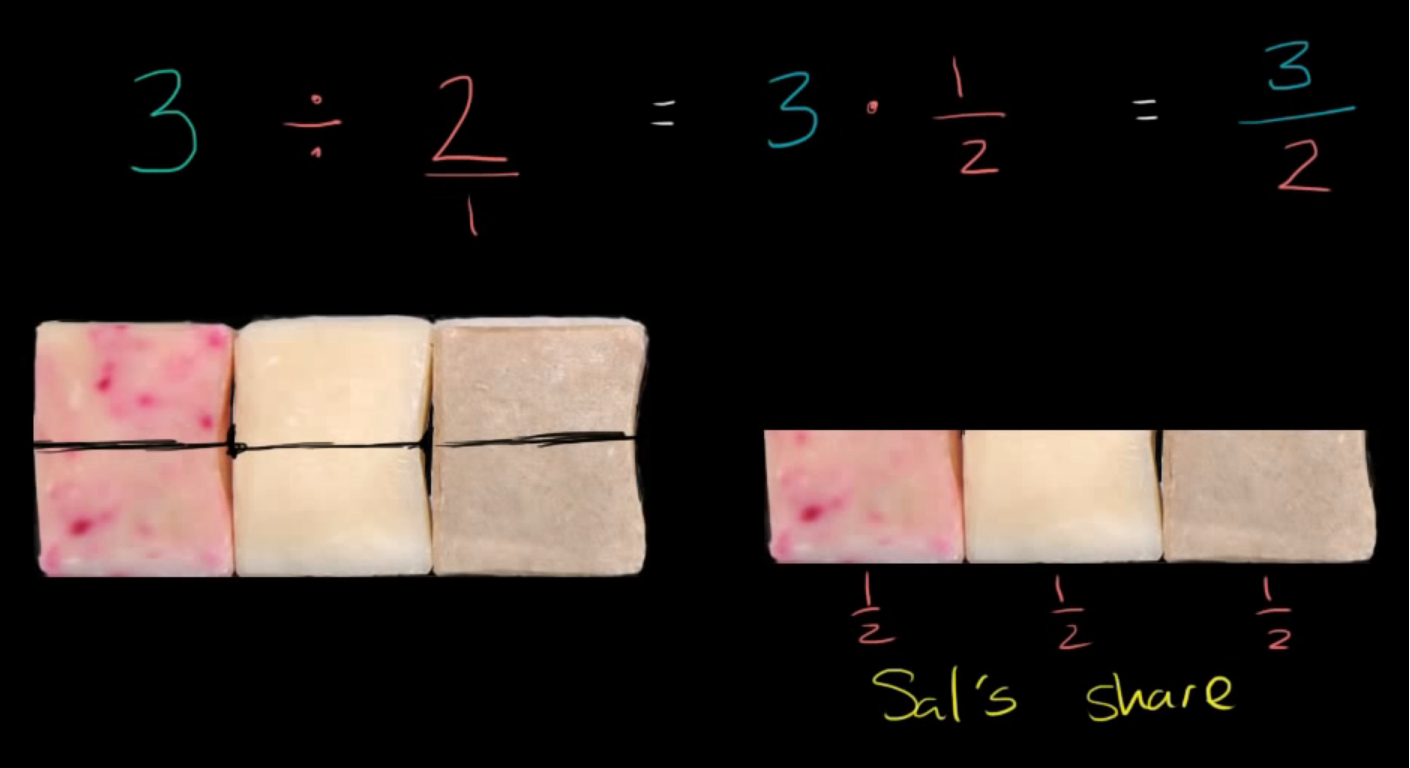 3 ÷ 2/1 = 3 · 1/2 = 3/2
1/2 1/2 1/2
Sal's share